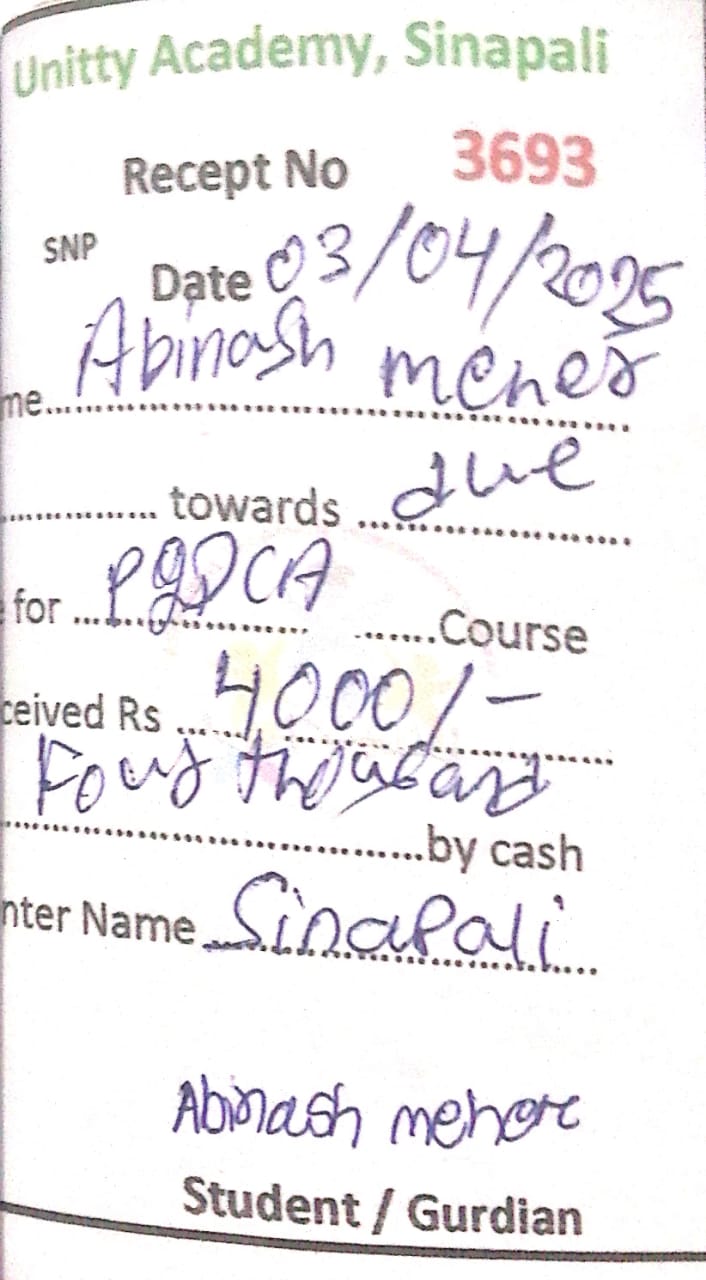 Unitty Academy, Sinapali
Recept No 3693
SNP
Date 03/04/2025
me Abinash meher
towards due
for PGDCA Course
ceived Rs 4000/-
Four thousand
by cash
nter Name Sinapali
Abinash meher
Student / Gurdian